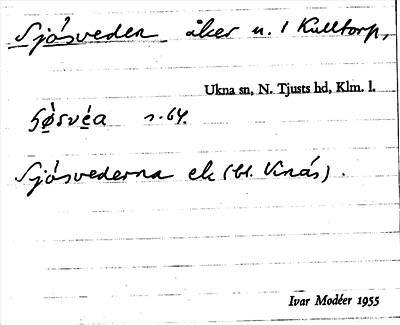 Sjösveden åker u. 1 Kulltorp,
Ukna sn, N. Tjusts hd, Klm. l.
s. 64.
Sjösvederna ek (bl. Vinäs).
Ivar Modéer 1955